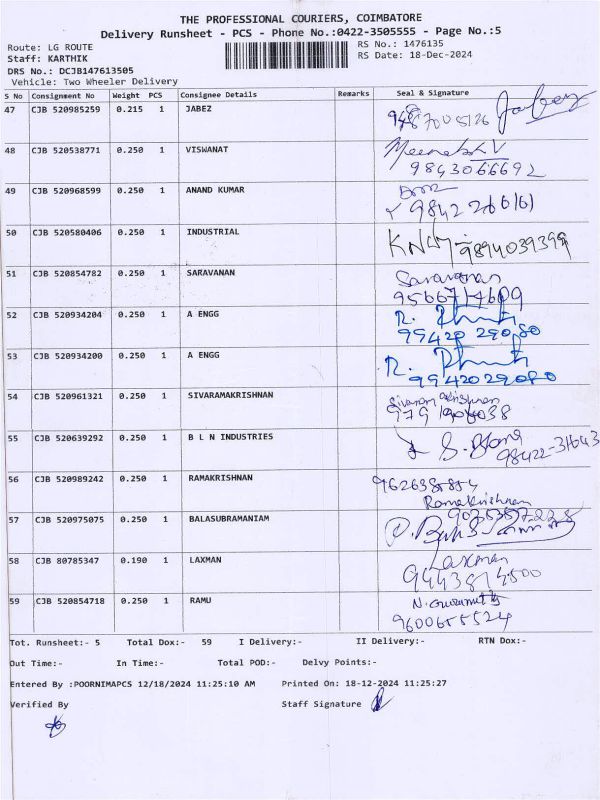 THE PROFESSIONAL COURIERS, COIMBATORE
Delivery Runsheet - PCS - Phone No.:0422-3505555 - Page No.:5
Route: LG ROUTE RS No.: 1476135
Staff: KARTHIK RS Date: 18-Dec-2024
DRS No.: DCJB147613505
Vehicle: Two Wheeler Delivery
S No Consignment No Weight PCS Consignee Details Remarks Seal & Signature
47 CJB 520985259 0.215 1 JABEZ Jabez
48 CJB 520538771 0.250 1 VISWANAT
9843066692
49 CJB 520968599 0.250 1 ANAND KUMAR
50 CJB 520580406 0.250 1 INDUSTRIAL 9894039399
51 CJB 520854782 0.250 1 SARAVANAN Saravanan
52 CJB 520934204 0.250 1 A ENGG R.
99420 29080
53 CJB 520934200 0.250 1 A ENGG R.
9942029080
54 CJB 520961321 0.250 1 SIVARAMAKRISHNAN Sivaramakrishnan
55 CJB 520639292 0.250 1 B L N INDUSTRIES
98422-31643
56 CJB 520989242 0.250 1 RAMAKRISHNAN
Ramakrishnan
57 CJB 520975075 0.250 1 BALASUBRAMANIAM
58 CJB 80785347 0.190 1 LAXMAN Laxman
59 CJB 520854718 0.250 1 RAMU
9600655524
Tot. Runsheet:- 5 Total Dox:- 59 I Delivery:- II Delivery:- RTN Dox:-
Out Time:- In Time:- Total POD:- Delvy Points:-
Entered By :POORNIMAPCS 12/18/2024 11:25:10 AM Printed On: 18-12-2024 11:25:27
Verified By Staff Signature